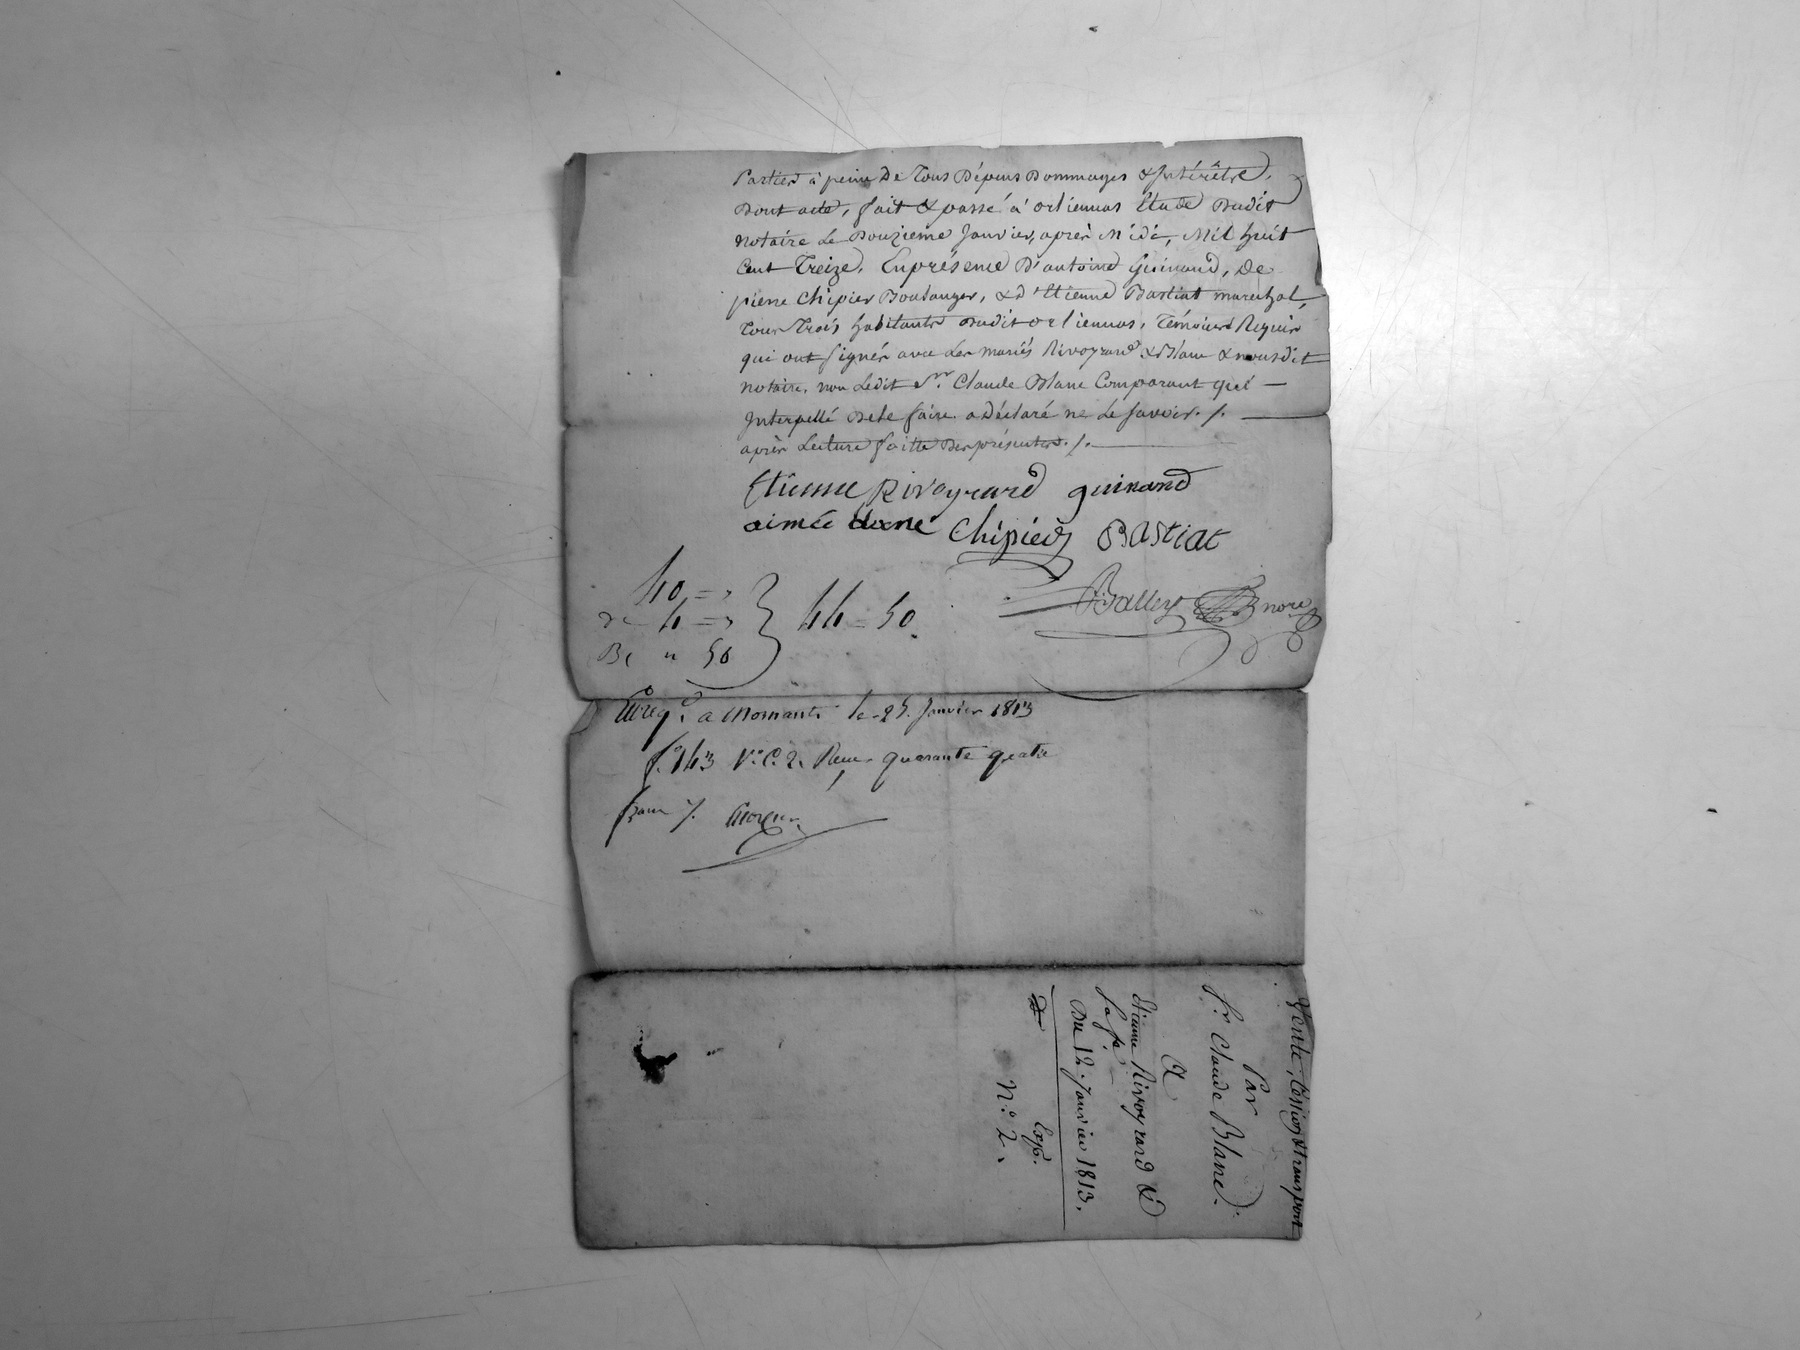 Parties à peine De Tous Dépens Dommages & Intérêts,
Dont acte, fait & passé à orliennas Etude Dudit
Notaire Le Douzieme Janvier, après Midi, Mil huit
Cent Treize, En présence D'antoine Guinand, De
pierre Chipier Boulanger, & d'Etienne Bastiat marechal,
Tous Trois habitants Dudit orliennas, Témoins Requis
qui ont signés avec Les mariés Rivoyrard & Blanc & nous dit
Notaire, non Ledit Sr. Claude Blanc Comparant qui
Interpellé De le faire a Déclaré ne Le savoir ./.
après Lecture faitte Des présentes ./.
Etienne Rivoyrard guinand
aimée blanc Chipier Bastiat
Balley nore
40 = "
4 = "
" 50
44 = 50
Enregé. a Mornant le 25. Janvier 1813
f. 143 Vo. C. 2. Reçu quarante quatre
francs ./.
Vente, Cession & transport
Par
Sr. Claude Blanc.
A
Etienne Rivoyrard &
Sa fe.
Du 12. Janvier 1813.
Exp.
N.o 2.